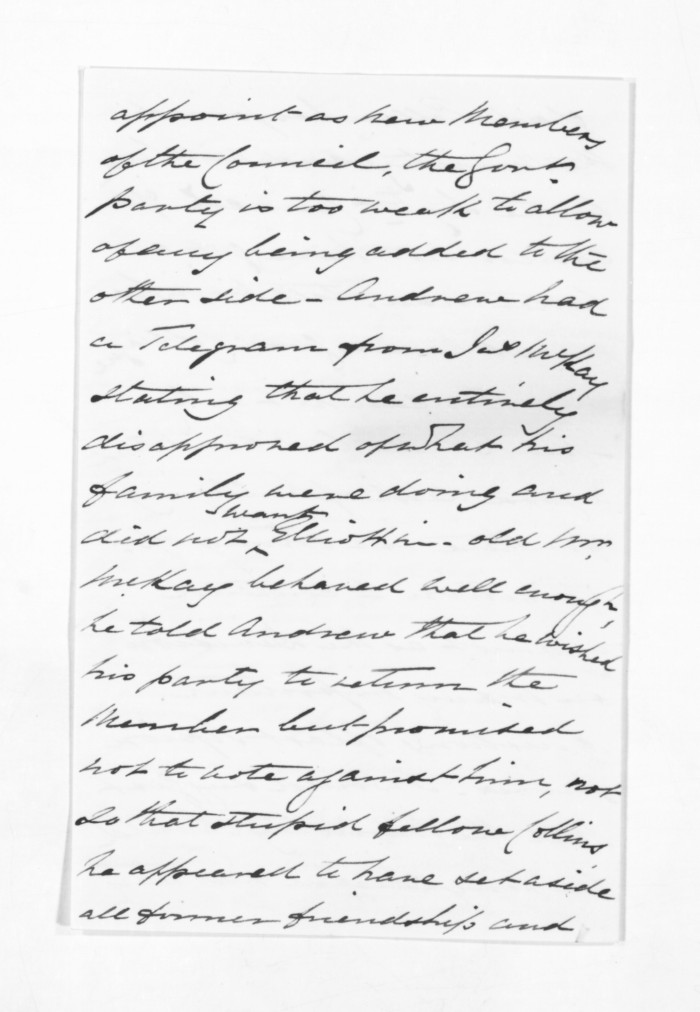 appoint as new Members
of the Council, the Govt.
party is too weak to allow
of any being added to the
other side - Andrew had
a Telegram from Jas McKay
stating that he entirely
disapproved of what his
family were doing and
did not want Elliott in - old Mr.
McKay behaved well enough,
he told Andrew that he wished
his party to return the
Member but promised
not to vote against him, not
so that stupid fellow Collins,
he appeared to have set aside
all former friendship and